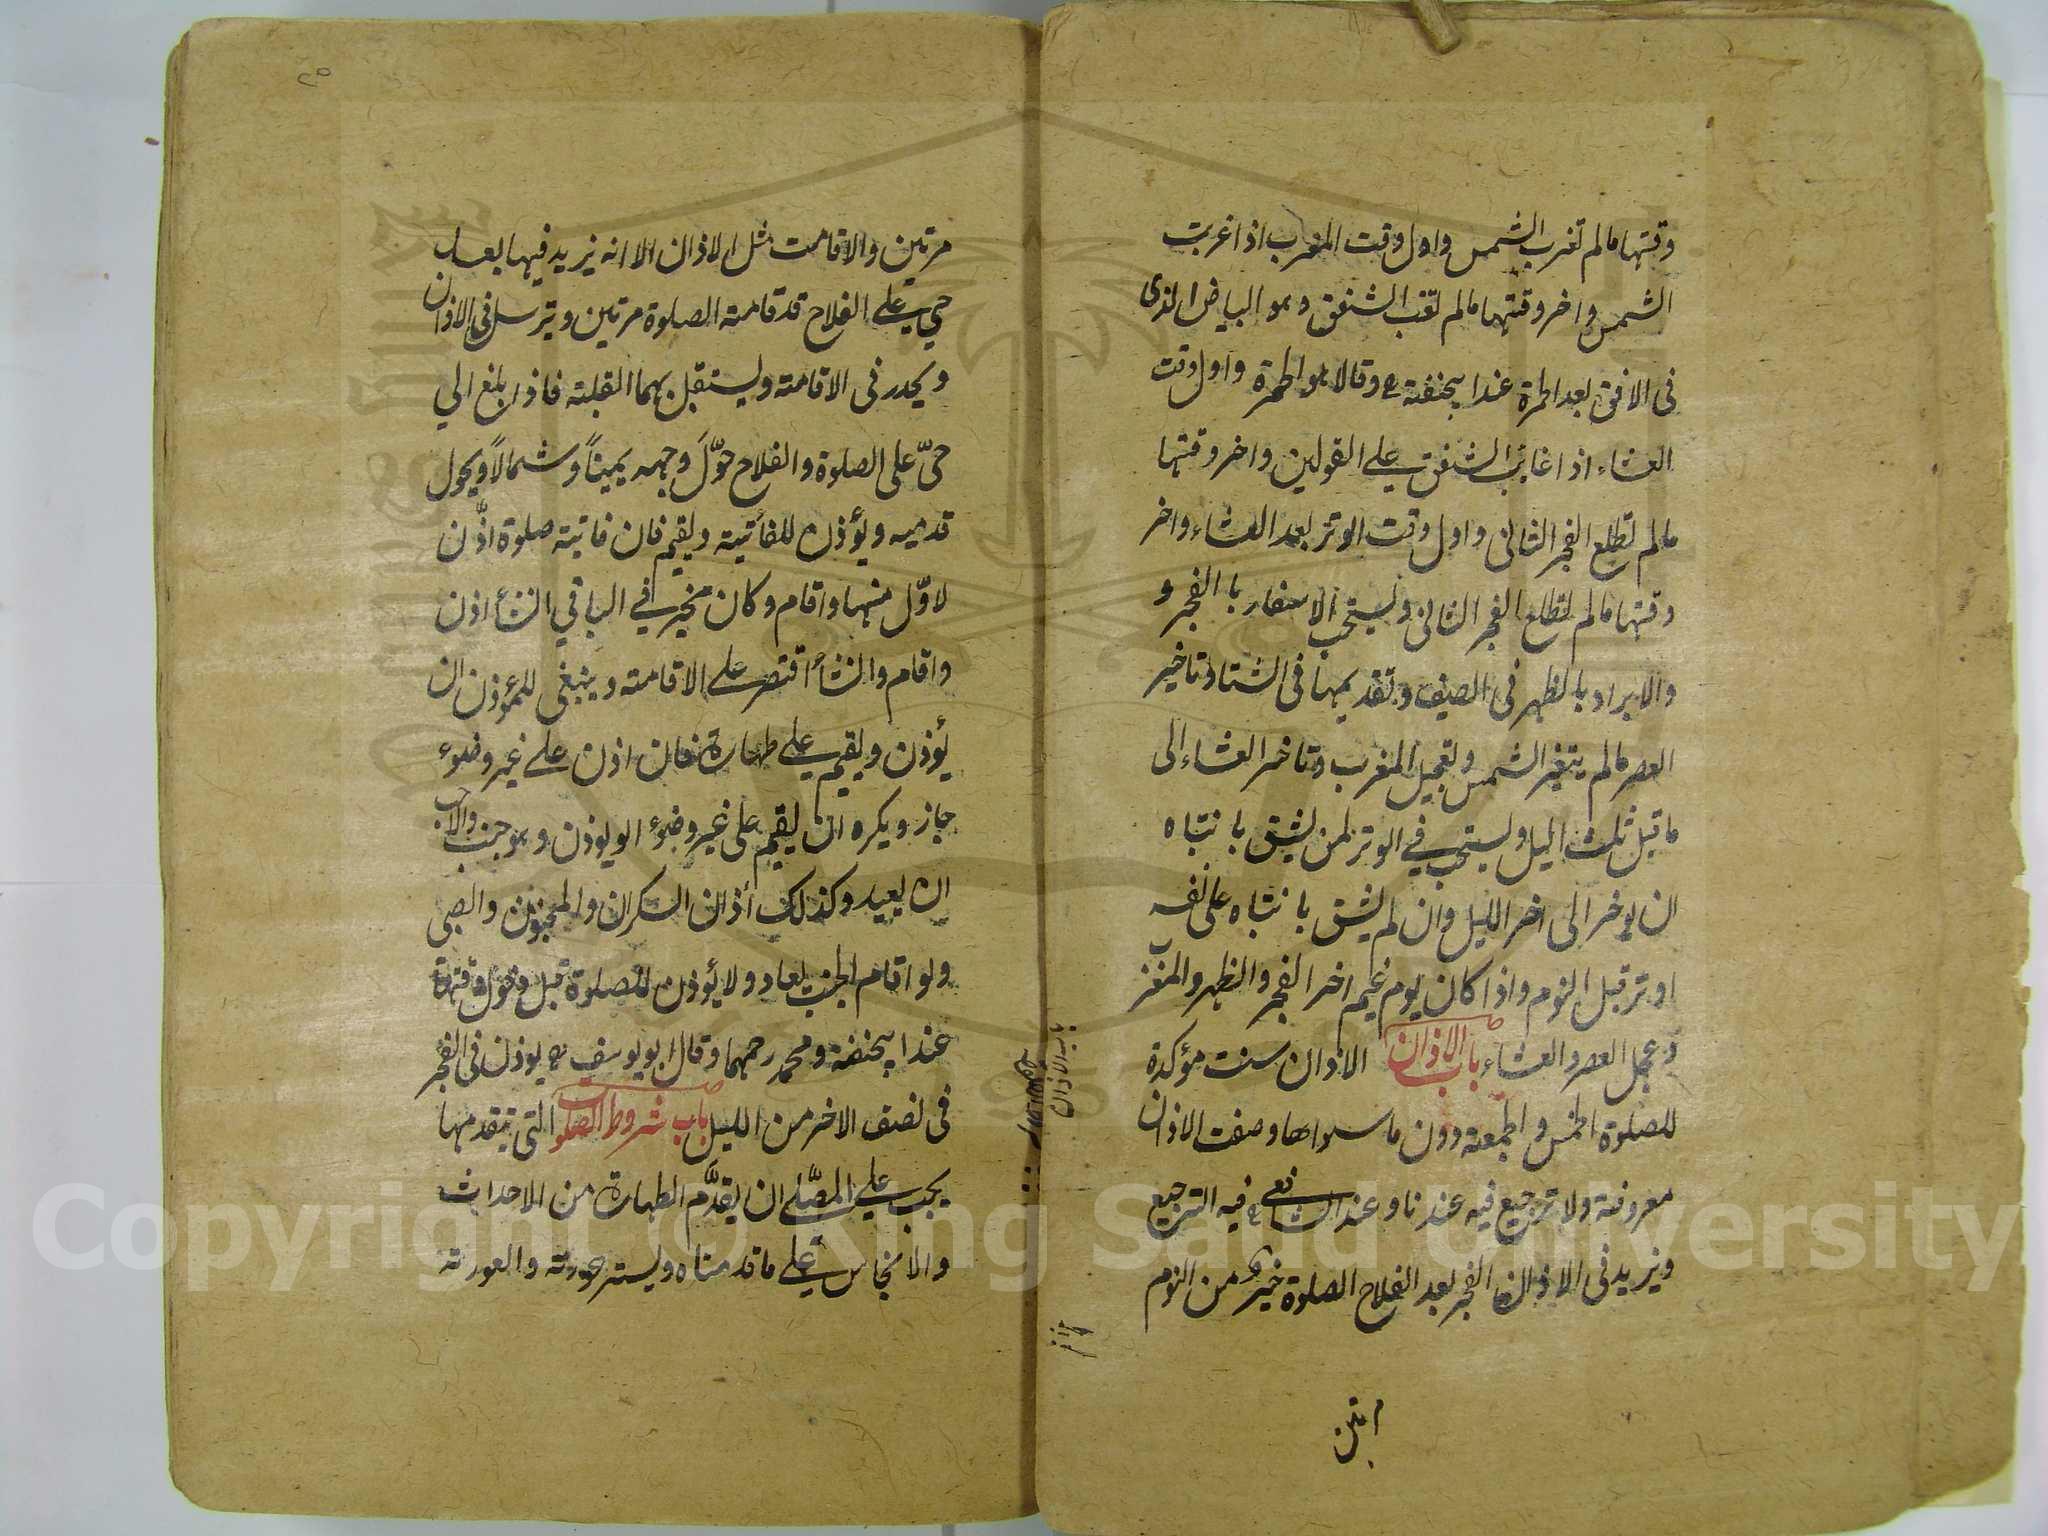 وقتها مالم تغرب الشمس واول وقت المغرب اذا غربت
الشمس واخر وقتها مالم تغب الشفق وهو البياض الذى
فى الافق بعد الحمرة عند ابيحنفة وقالا هو الحمرة واول وقت
العشاء اذا غاب الشفق على القولين واخر وقتها
مالم تطلع الفجر الثانى واول وقت الوتر بعد العشاء واخر
وقتها مالم تطلع الفجر الثانى ويستحب الاسفار با الفجر و
والابراد بالظهر فى الصيف وتقديمها فى الشتا وتاخير
العصر مالم يتغير الشمس وتعجيل المغرب وتاخير العشاء الى
ما قبل ثلث اليل ويستحب فى الوتر لمن يشق با نتباه
ان يوخر الى اخر الليل وان لم يشق با نتباه على نفسه
اوتر قبل النوم واذا كان يوم غيم اخر الفجر والظهر والمغرب
وعجل العصر والعشاء باب الاذان الاذان سنت مؤكدة
للصلوة الخمس والجمعة دون ما سواها وصفت الاذان
معروفة ولا ترجيع فيه عندنا وعند الشافعى فيه الترجيع
ويزيد فى الاذان الفجر بعد الفلاح الصلوة خير من النوم
مرتين
باب الاذان
مرتين والاقامت مثل الاذان الا انه يزيد فيها بعد
حي على الفلاح قد قامة الصلوة مرتين ويترسل فى الاذان
ويحدر فى الاقامة ويستقبل بهما القبلة فاذا بلغ الي
حىّ على الصلوة والفلاح حوّل وجهه يميناً وشمالاً ويحول
قدميه ويؤذن للفائتية ويقيم فان فاتيته صلوة اذّن
لاوّل منها واقام وكان مخير في الباقي انشأ اذن
واقام وانشأ اقتصر على الاقامة وينبغى للمؤذن ان
يؤذن ويقيم على طهارة فان اذن على غير وضوء
جاز ويكره ان يقيم على غير وضوء او يوذن وهو جنب والاحب
ان يعيد وكذلك أذان السكران والمجنون والصبى
ولو اقام الجنب يعاد ولا يؤذن للصلوة قبل دخول وقتها
عند ابيحنفة ومحمد رحمهما وقال ابو يوسف يوذن فى الفجر
فى نصف الاخر من الليل باب شروط الصلوة التى يتقدمها
يجب على المصّلى ان يقدَّم الطهارة من الاحداث
والانجاس على ما قدمناه ويستر عورته والعورة